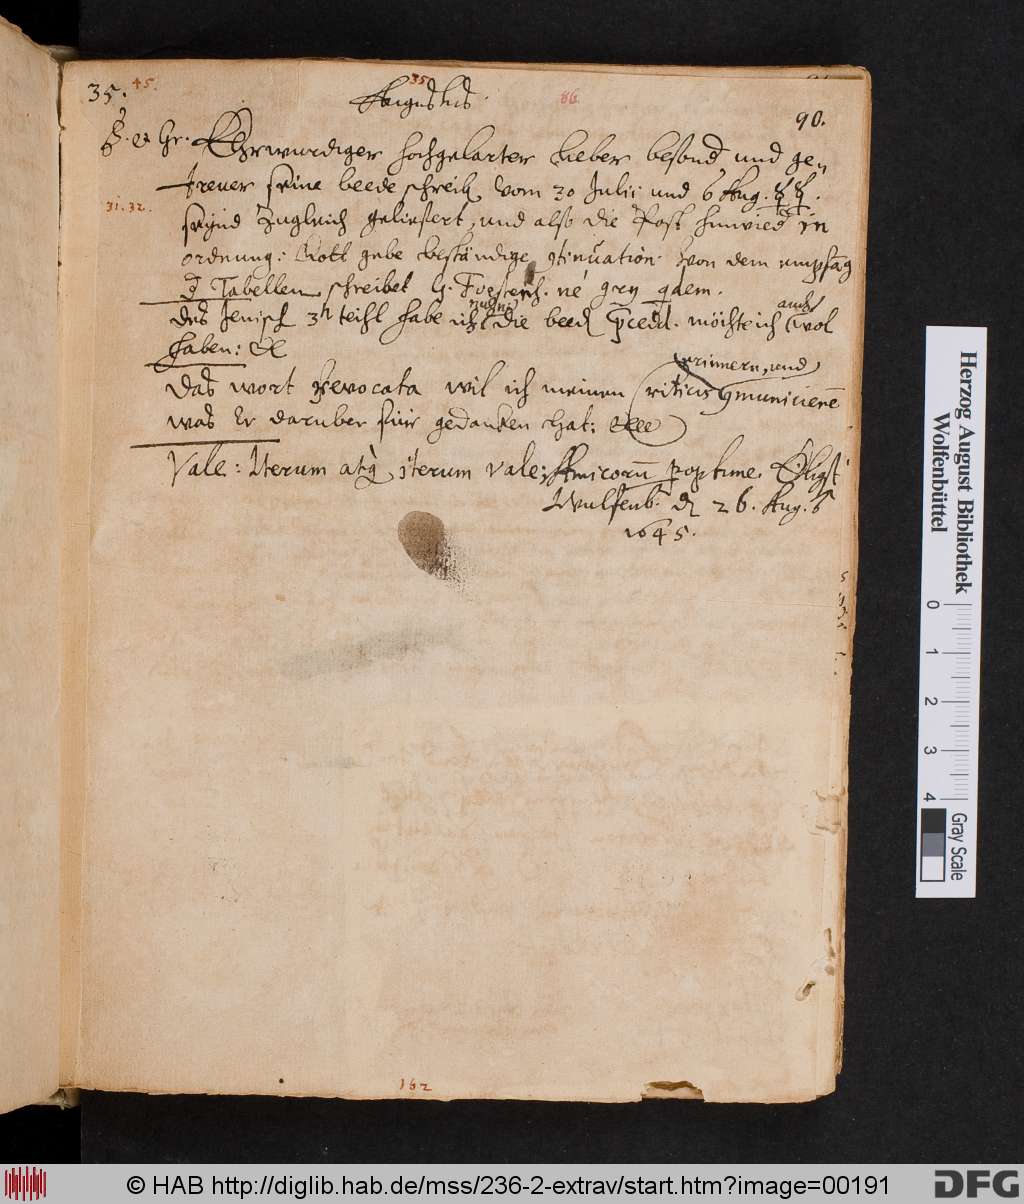 35. 45.
Augustus
35
86
90.
P. et Gr. Ehrwurdiger hochgelarter lieber besond und ge-
trewer seine beede schreib. vom 30 Julii und 6 Aug.
31. 32.
seynd zugleich geliefert, und also die Post hinwied in
ordnung: Gott gebe beständige 9tinuation. Von dem empfang
d Tabellen schreibet H.
des Jenisch 3n teihl habe ich nuhn die beed preced. möchte ich auch wol
haben: &
Das wort Revocata wil ich meinen Criticis erinnern, und 9municiren
was Er daruber für gedanken hat:
Vale: Iterum atq iterum vale; Amicorum p optime.
Wulfenb. d 26. Aug.
1645.
162
Herzog August Bibliothek
Wolfenbüttel
0 1 2 3 4
Gray Scale
© HAB http://diglib.hab.de/mss/236-2-extrav/start.htm?image=00191
DFG